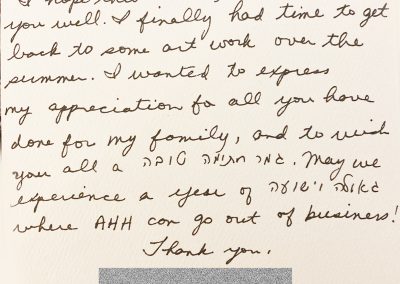 I hope this
you well. I finally had time to get
back to some art work over the
summer. I wanted to express
my appreciation fo all you have
done for my family, and to wish
you all a גמר חתימה טובה. May we
experience a year of גאולה וישועה
where AHH can go out of business!
Thank you.